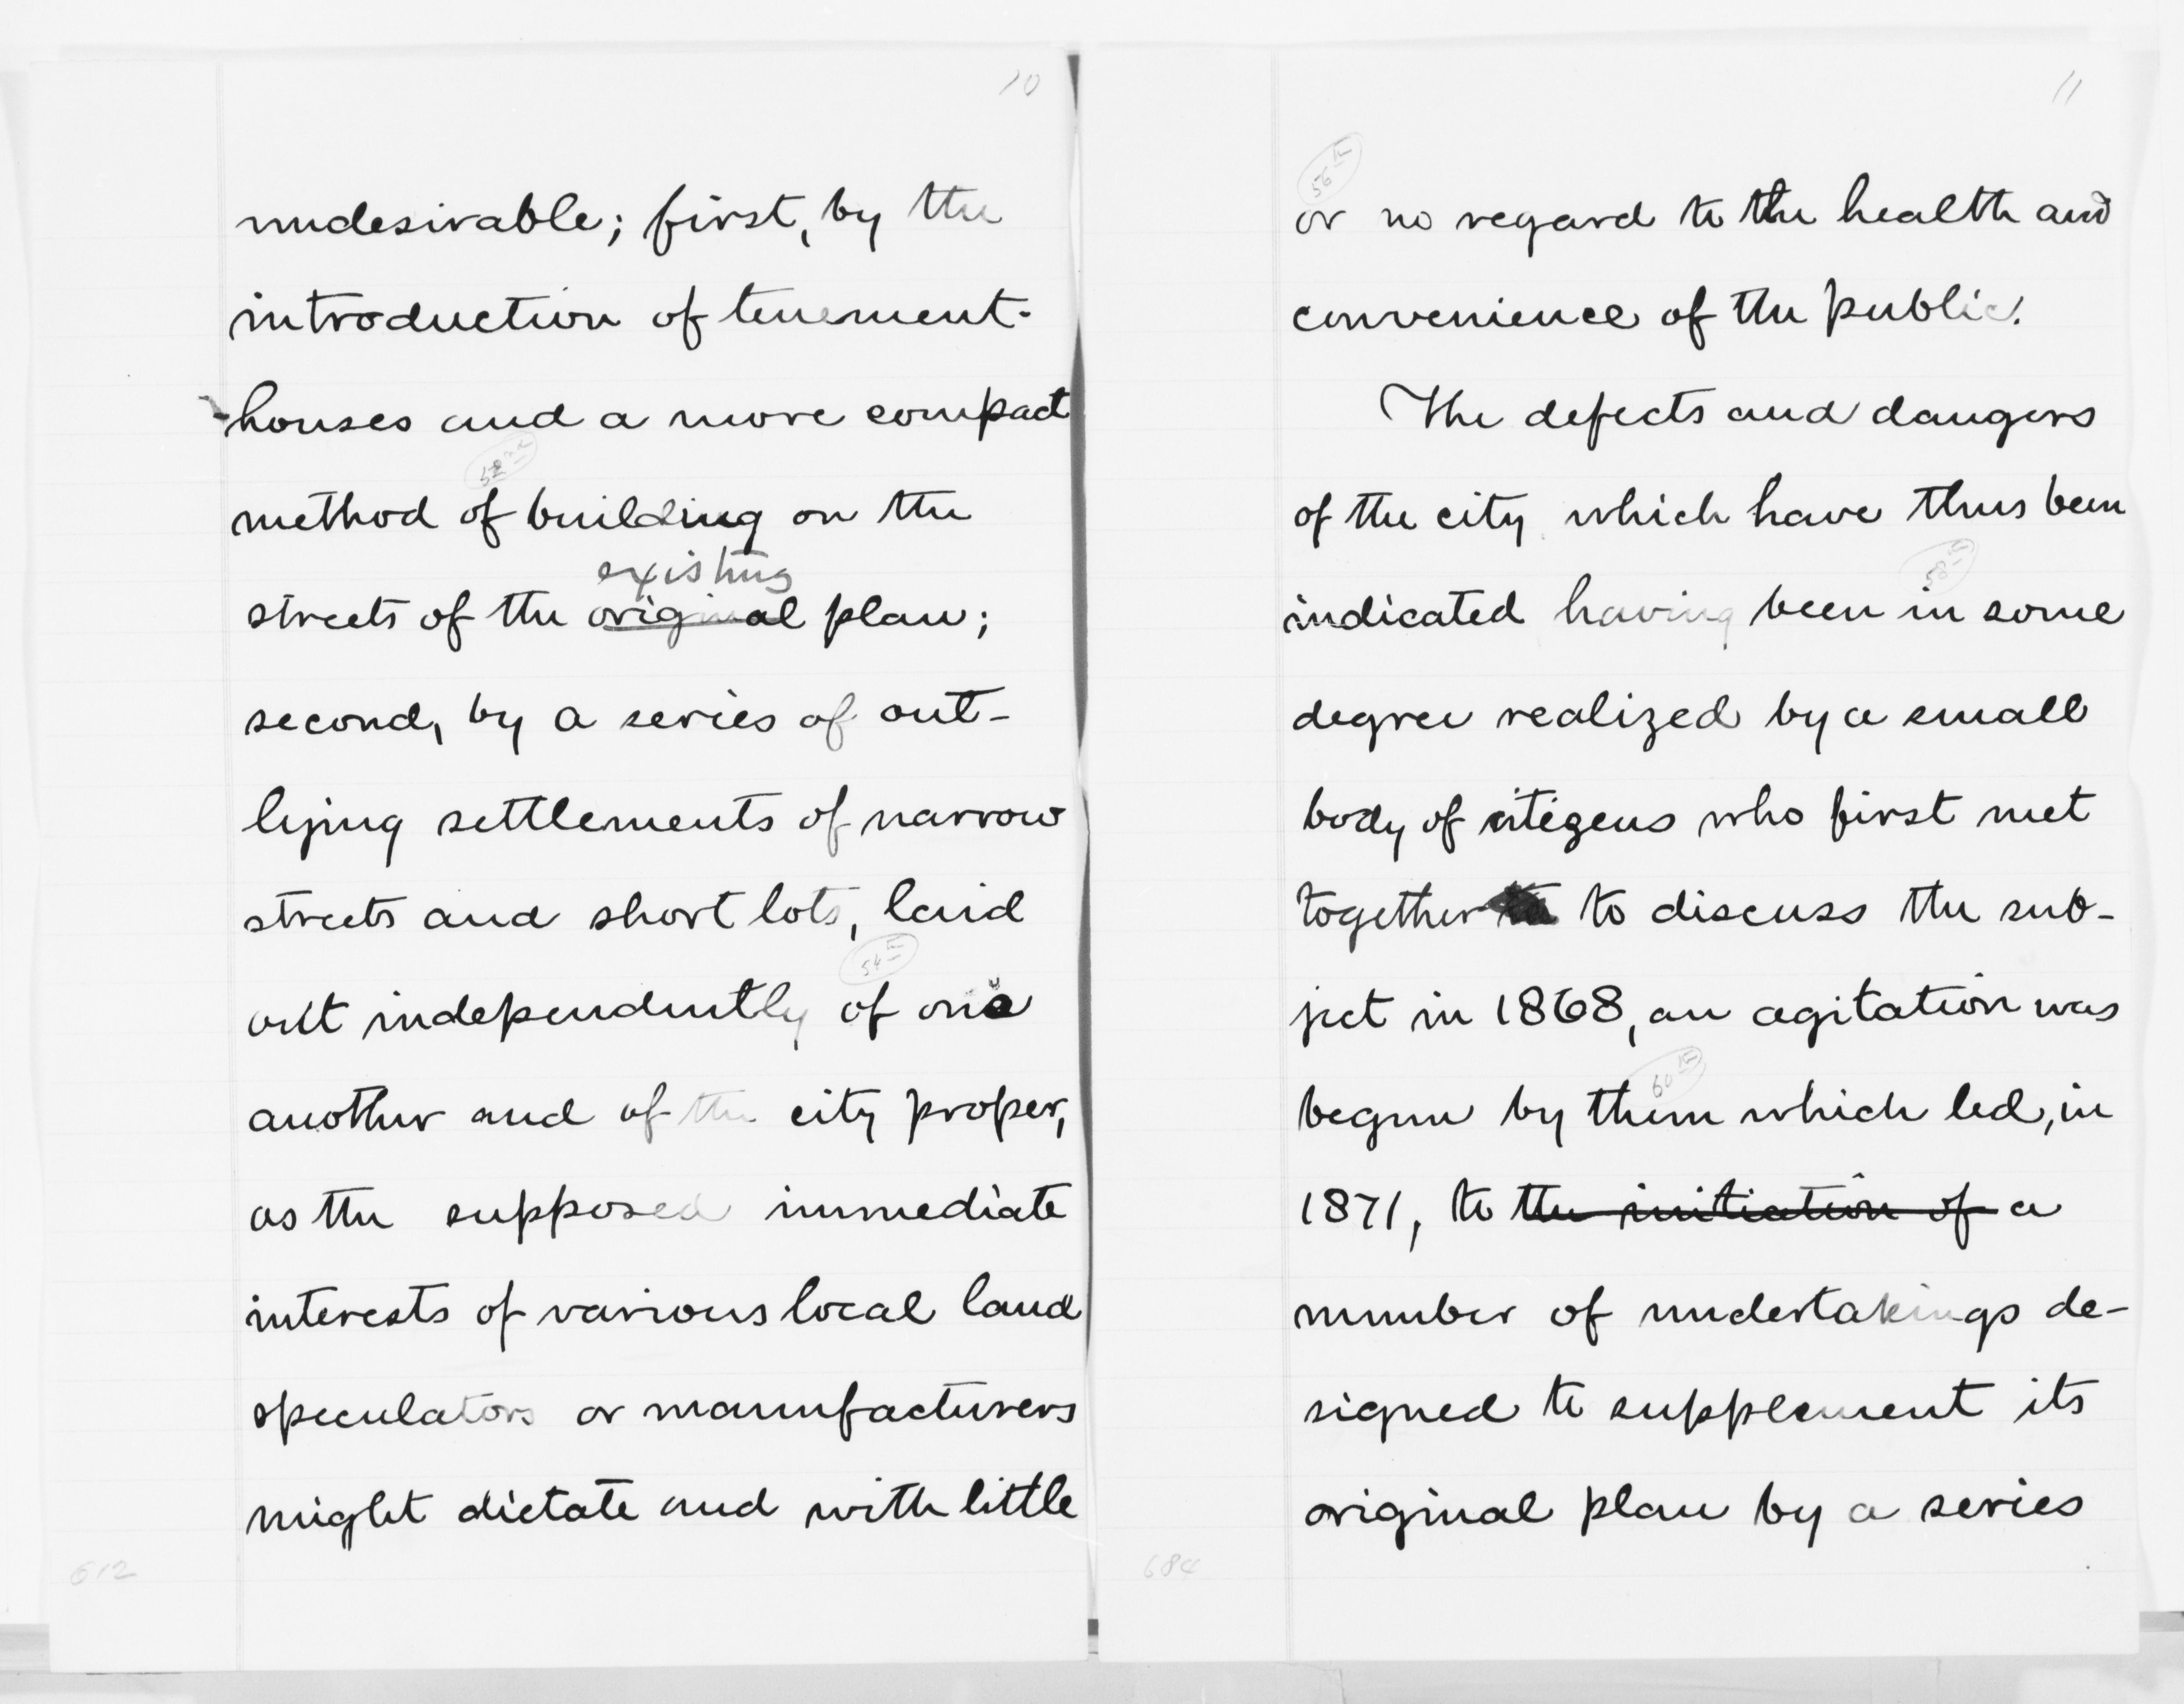 10
undesirable; first, by the
introduction of tenement-
-houses and a more compact
52nd
method of building on the
existing
streets of the original plan;
second, by a series of out-
lying settlements of narrow
streets and short lots, laid
54th
out independently of one
another and of the city proper,
as the supposed immediate
interests of various local land
speculators or manufacturers
might dictate and with little
612
11
56th
or no regard to the health and
convenience of the public.
The defects and dangers
of the city which have thus been
58th
indicated having been in some
degree realized by a small
body of citizens who first met
together to discuss the sub-
ject in 1868, an agitation was
60th
begun by them which led, in
1871, to the initiation of a
number of undertakings de-
signed to supplement its
original plan by a series
684